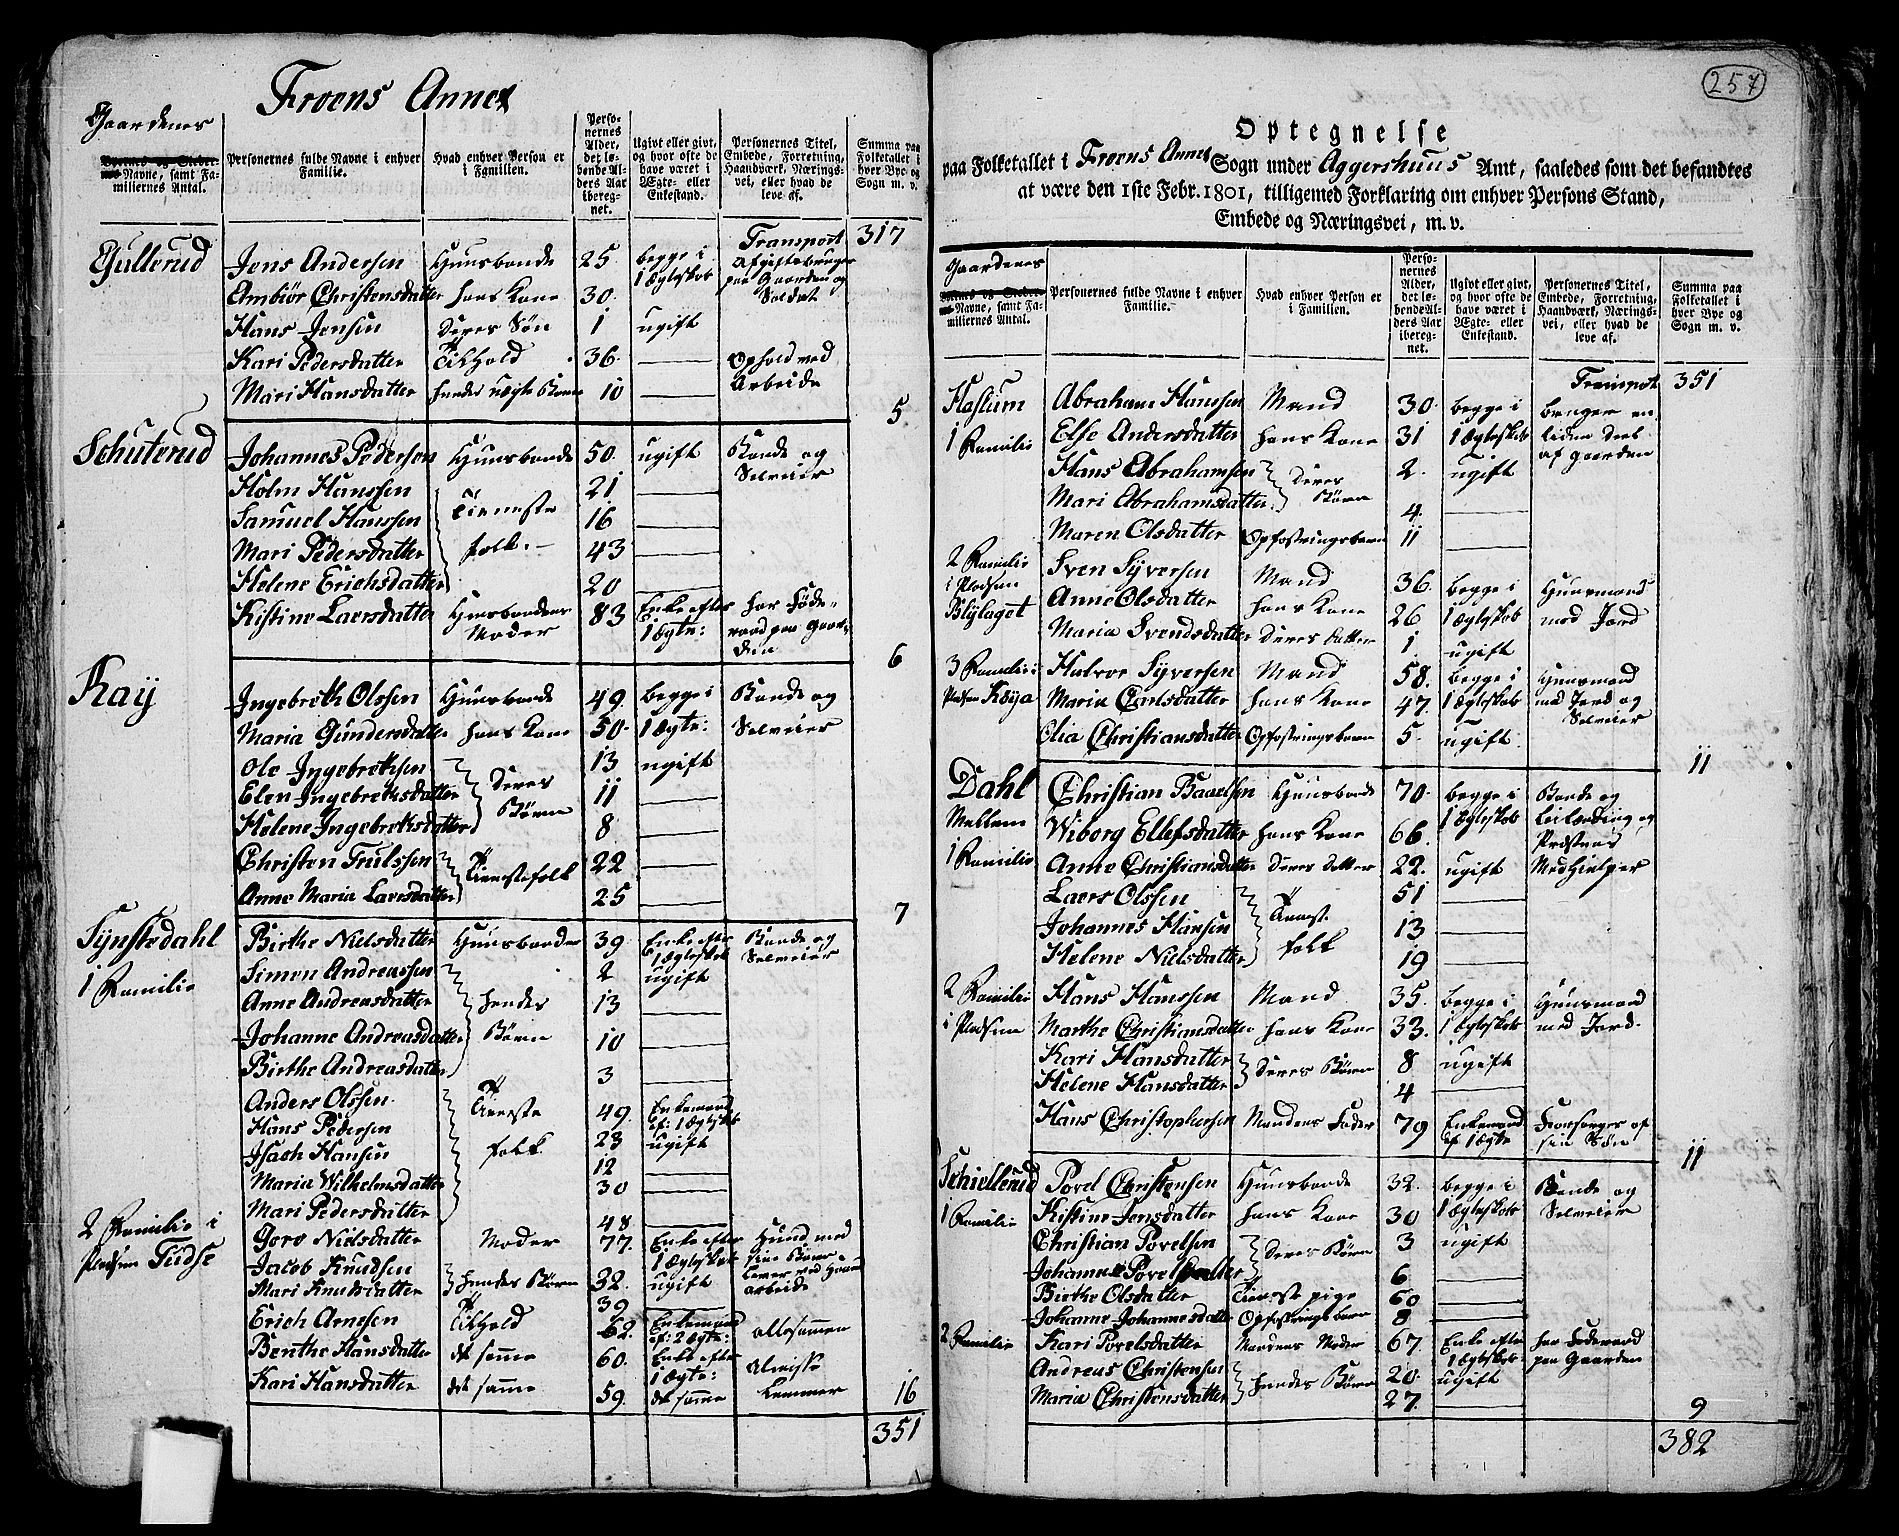 Froens Annex
Gaardenes
Navne, samt Familiernes Antal.
Personernes fulde Navne i enhver Familie.
Hvad enhver Person er i Familien.
Personernes Alder, det løbende Alders Aar iberegnet.
Ugivt eller givt, og hvor ofte de have været i Ægte- eller Enkestand.
Personernes Titel, Embede, Forretning, Haandværk, Næringsvei, eller hvad de leve af.
Summa paa Folketallet i hver Bye og Sogn m. v.
Transport 317
Gullerud Jens Andersen Huusbonde 25. begge i Afgiftsbruger
Ambiør Christensdatter hans Kone 30. 1 Ægteskab paa Gaarden og Soldat
Hans Jensen Deres Søn 1 ugift
Kari Pedersdatter Tilhold 36. Ophold ved
Mari Hansdatter hendes uægte Barn 10 Arbeide
5
Schuterud Johannes Pedersen Huusbonde 50. ugift Bonde og
Holm Hanssen Tieneste 21 Selveier
Samuel Hanssen folk. 16
Mari Pedersdatter 43
Helene Erichsdatter 20
Kistine Laersdatter Huusbondens Moder 83 Enke efter 1 Ægte: har Føderaad paa Gaarden
6
Ray Ingebrekt Olssen Huusbonde 49. begge i Bonde og
Maria Gundersdatter hans Kone 50. 1 Ægte: Selveier
Ole Ingebrektsen Deres 13 ugift
Elen Ingebreksdatter Børn 11
Helene Ingebreksdatter 8
Christen Trulssen Tienestefolk 22
Anne Maria Laersdatter 25
7
Synstedahl Birthe Nielsdatter Huusbonde 39. Enke efter Bonde og
1 Familie Simen Andreassen Hendes 2 1 Ægteskab Selveier
Anne Andreasdatter Børn 13 ugift
Johanne Andreasdatter 10
Birthe Andreasdatter 3
Anders Olssen Tieneste 49. Enkemand
Hans Pedersen folk 23 ef: 1 Ægteskab
Isach Hansen 12 ugift
Maria Wilhelmsdatter 30
Mari Pedersdatter 48
2 Familie i Goro Nielsdatter Moder 77. Enke efter Huus med
Pladsen Tudse Jacob Knudsen Hendes Børn 32. 1 Ægteskab sine Børn
Mari Knudsdatter 39 ugift lever ved Haandarbeide
Erich Arnesen Tilhold 62. Enkemand ef: 2 Ægte: allesammen
Benthe Hansdatter det samme 60. Enke efter 1 Ægte: Almisse
Kari Hansdatter det samme 59. det samme Lemmer 16
351
257
Optegnelse
paa Folketallet i Froens Annex Sogn under Aggershuus Amt, saaledes som det befandtes
at være den 1ste Febr. 1801, tilligemed Forklaring om enhver Persons Stand,
Embede og Næringsvei, m. v.
Gaardenes
Navne, samt Familiernes Antal.
Personernes fulde Navne i enhver Familie.
Hvad enhver Person er i Familien.
Personernes Alder, det løbende Alders Aar iberegnet.
Ugivt eller givt, og hvor ofte de have været i Ægte- eller Enkestand.
Personernes Titel, Embede, Forretning, Haandværk, Næringsvei, eller hvad de leve af.
Summa paa Folketallet i hver Bye og Sogn m. v.
Transport 351
Haslum Abraham Hanssen Mand 30. begge i bruger en
1 Familie Else Andersdatter hans Kone 31 1 Ægteskab liden Deel
Hans Abrahamsen Deres 2. ugift af Gaarden
Mari Abrahamsdatter Børn 4.
Maren Olsdatter Opfostringsbarn 11
2 Familie Sven Syversen Mand 36. begge i Huusmand
i Pladsen Anne Olsdatter hans Kone 26 1 Ægteskab med Jord
Blylaget Maria Svendsdatter Deres Datter 1 ugift
3 Familie i Halvor Syversen Mand 58. begge i Huusmand
Pladsen Køya Maria Carlsdatter hans Kone 47. 1 Ægteskab med Jord og
Olia Christiansdatter Opfostringsbarn 5. ugift Selveier
11
Dahl Christian Paaelsen Huusbonde 70. begge i Bonde og
Mellem Wiborg Ellefsdatter hans Kone 66. 1 Ægteskab Leilænding og
1 Familie Anne Christiansdatter Deres Datter 22. ugift Præstens Medhielper
Laers Olssen Tieneste 51
Johannes Hansen folk 13
Helene Nielsdatter 19
2 Familie Hans Hanssen Mand 35. begge i Huusmand
i Pladsen Marthe Christiansdatter hans Kone 33. 1 Ægteskab med Jord.
Kari Hansdatter Deres Børn 8 ugift
Helene Hansdatter 4
Hans Christophersen Mandens Fader 79 Enkemand ef 1 Ægte Forsørges af sin Søn
11
Schiellerud Povel Christensen Huusbonde 32. begge i Bonde og
1 Familie Kistine Jensdatter hans Kone 30 1 Ægteskab Selveier
Christian Povelsen Deres Børn 3 ugift
Johanne Povelsdatter 6
Birthe Olsdatter Tieneste pige 60
Johanne Johannesdatter Opfostringsbarn 8
2 Familie Kari Povelsdatter Mandens Moder 67 Enke efter har Føderaad
Andreas Christensen Hendes Børn 20. 1 Ægteskab paa Gaarden
Maria Christensdatter 27. ugift
9
382